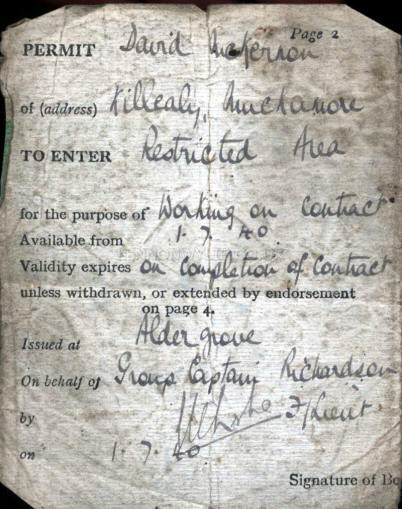 Page 2
PERMIT David McKernon
of (address) Killealy, Muckamore
TO ENTER Restricted Area
for the purpose of Working on contract
Available from 1. 7. 40.
Validity expires on completion of contract
unless withdrawn, or extended by endorsement
on page 4.
Issued at Aldergrove
On behalf of Group Captain Richardson
by F/Lieut.
on 1. 7. 40
Signature of